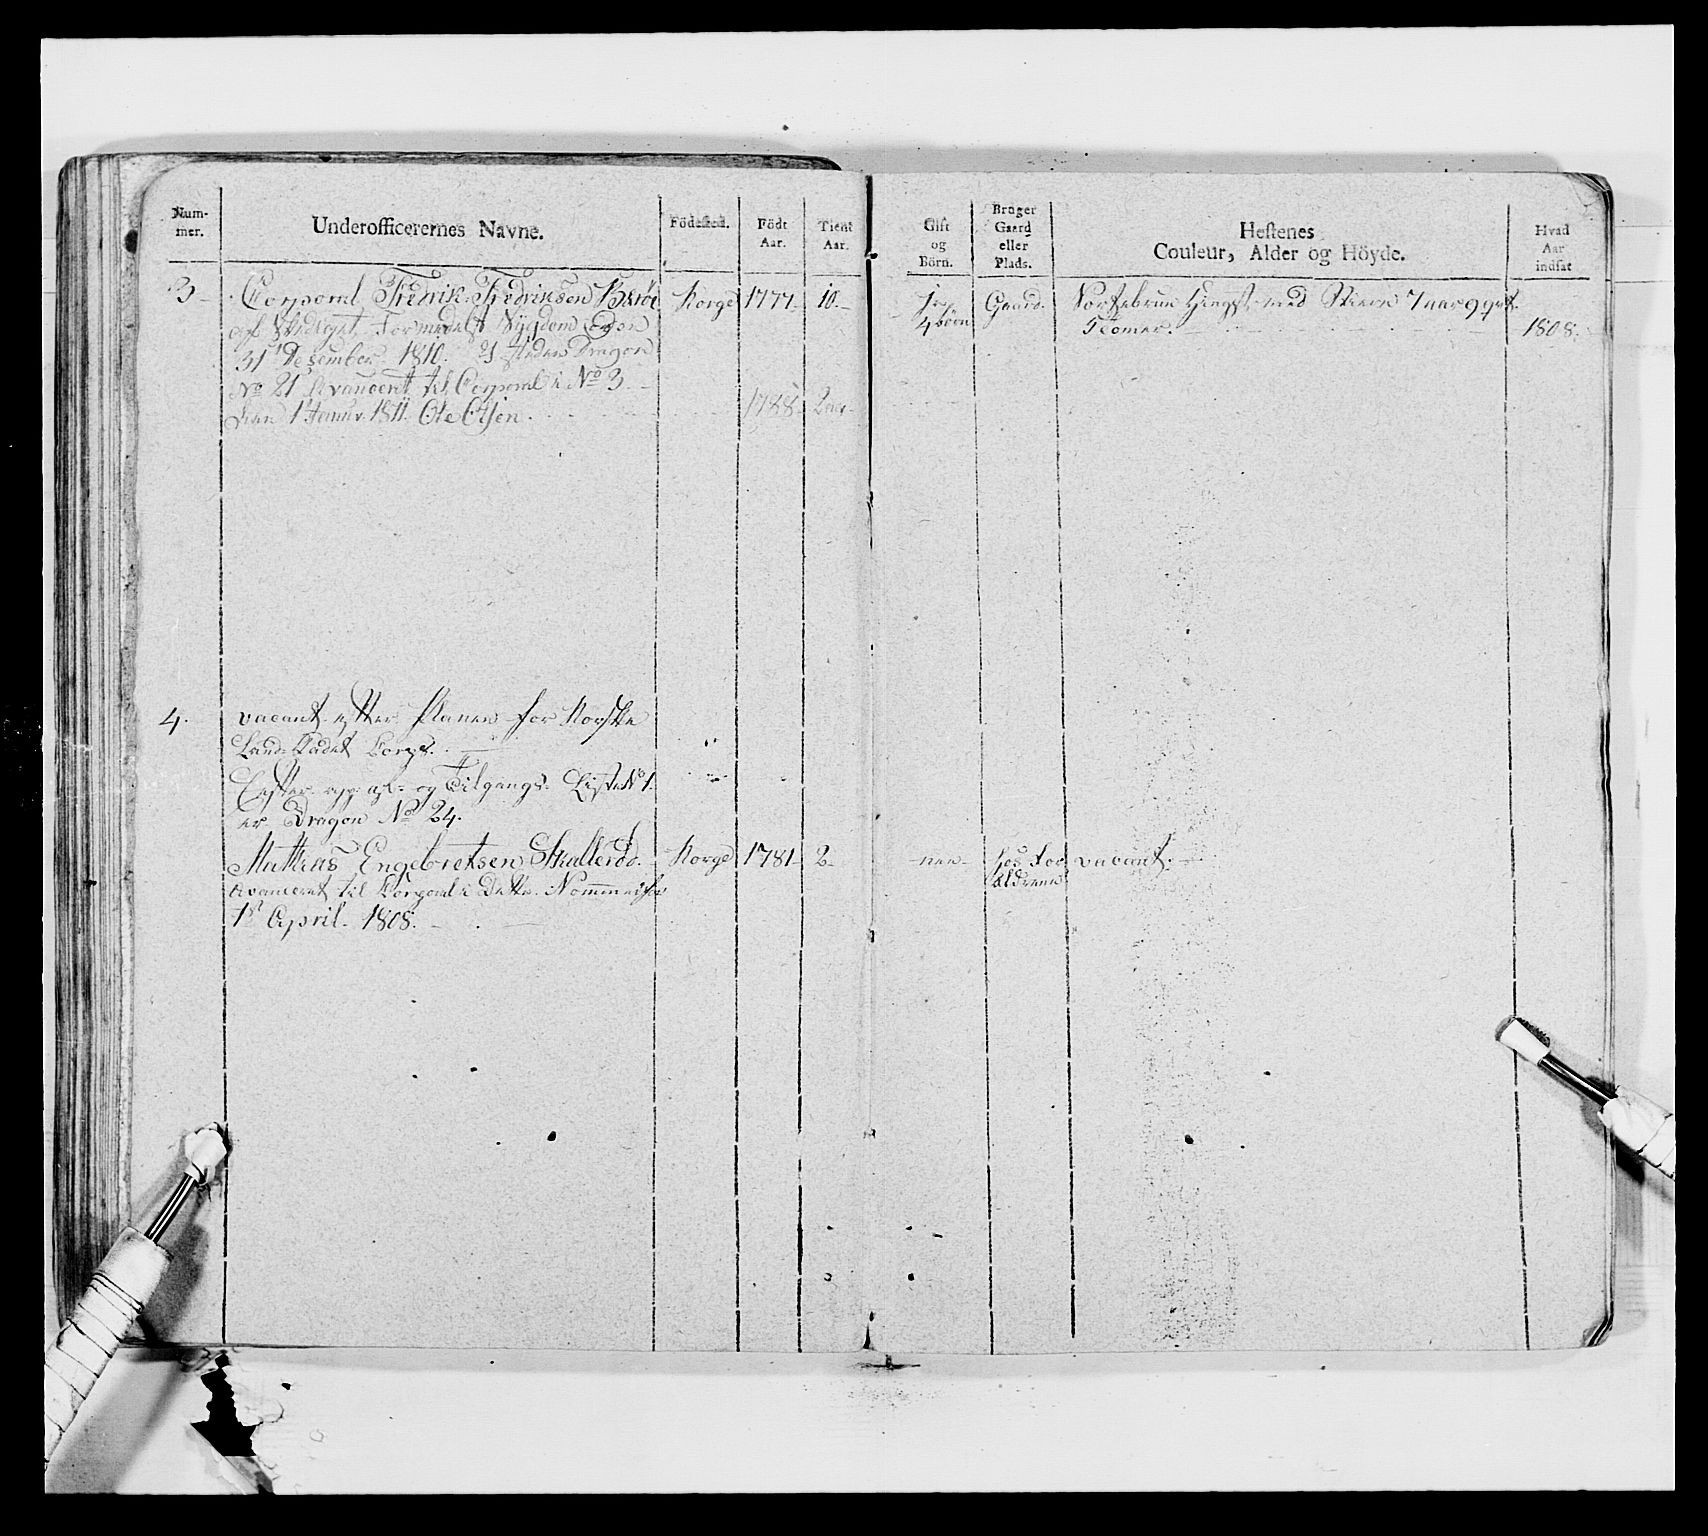 Num-
mer.
Underofficerernes Navne.
Födested.
Födt
Aar.
Tient
Aar.
Gift
og
Börn.
Bruger
Gaard
eller
Plads.
Hestenes
Couleur, Alder og Höyde.
Hvad
Aar
indsat
3 Corporal Fredrik Fredriksen Norge 1777 10. Ja Gaard. Hingst med 7 aar 9 qvt
Formedelst Sÿgdom den 4 börn 1808.
31 Desember 1810. Dragon
No 21 Avanceret til Corporal i No 3
1 Januar 1811. Ole Olsen 1788 2
4. vacant efter Planen for Norske
Land Cadet Corps.
Efter af- og Tilgangs Liste No 1.
er Dragon No 24.
Mathias Engebretsen Norge 1781 2 nei hos For vacant.
Avanceret til Corporal i Dette Nommer ældrene
1st April. 1808.